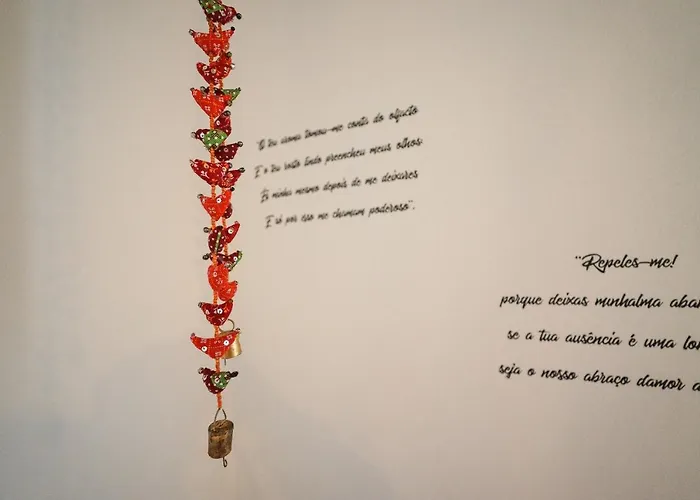 "O teu aroma tomou-me conta do olfacto
E o teu rosto lindo preencheu meus olhos
És minha mesmo depois de me deixares
E só por isso me chamam poderoso".
"Repeles-me!
porque deixas minhalma aban
se a tua ausência é uma lon
seja o nosso abraço d'amor a